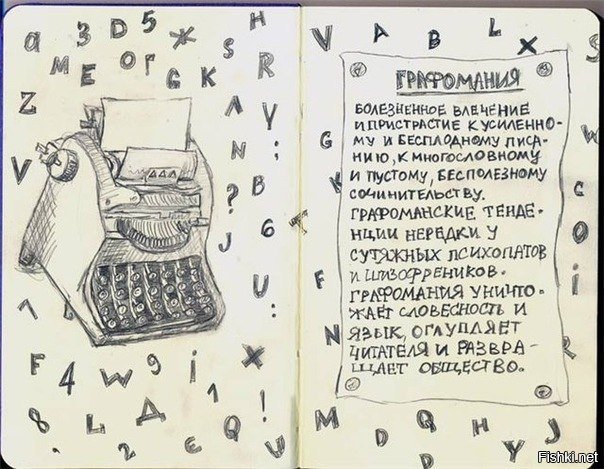 a 3 D 5 * H
M E O Г G K S R
Z Л У
N ;
V ? B
J 6
U :
F 4 W 9 i X
8 L Д 1 !
2 e Q U
V A B L X S
G
K
C
O
F i
N
R
M D Q H Y J
D
ГРАФОМАНИЯ
БОЛЕЗНЕННОЕ ВЛЕЧЕНИЕ
И ПРИСТРАСТИЕ К УСИЛЕННО-
МУ И БЕСПЛОДНОМУ ПИСА-
НИЮ, К МНОГОСЛОВНОМУ
И ПУСТОМУ, БЕСПОЛЕЗНОМУ
СОЧИНИТЕЛЬСТВУ.
ГРАФОМАНСКИЕ ТЕНДЕ-
НЦИИ НЕРЕДКИ У
СУТЯЖНЫХ ПСИХОПАТОВ
И ШИЗОФРЕНИКОВ.
ГРАФОМАНИЯ УНИЧТО-
ЖАЕТ СЛОВЕСНОСТЬ И
ЯЗЫК, ОГЛУПЛЯЕТ
ЧИТАТЕЛЯ И РАЗВРА-
ЩАЕТ ОБЩЕСТВО.
Fishki.net